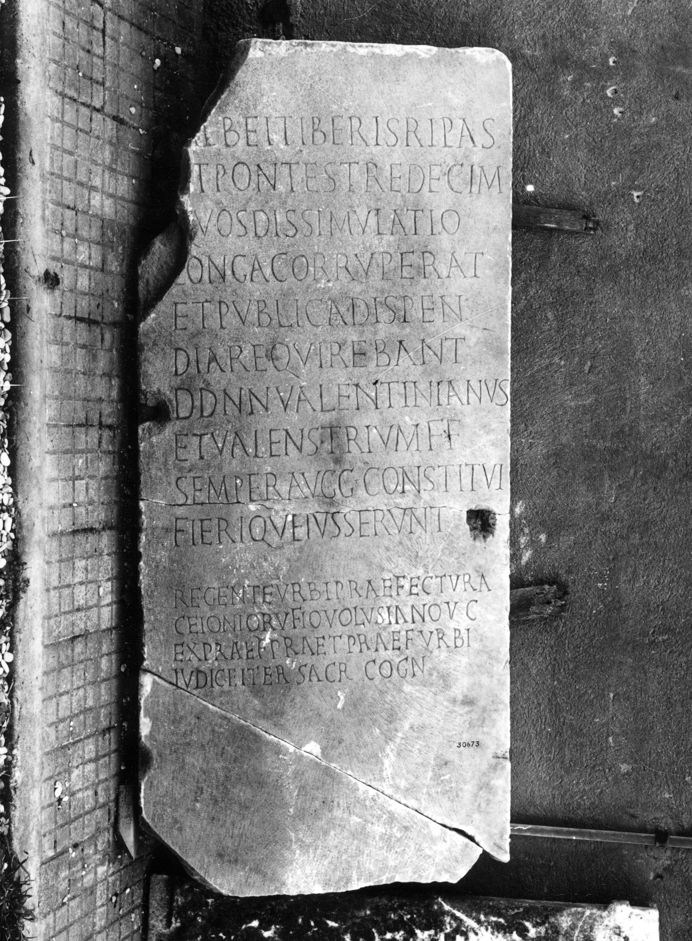 REBEITIBERISRIPAS
TPONTESTREDECIM
VOSDISSIMVLATIO
LONGACORRVPERAT
ETPVBLICADISPEN
DIAREQVIREBANT
DDNNVALENTINIANVS
ETVALENSTRIVMFF
SEMPERAVGG CONSTITVI
FIERIQVEIVSSERVNT
REGENTEVRBIPRAEFECTVRA
CEIONIORVFIOVOLVSIANOVC
EXPRAEFPRAETPRAEFVRBI
IVDICEITER SACR COGN
30673